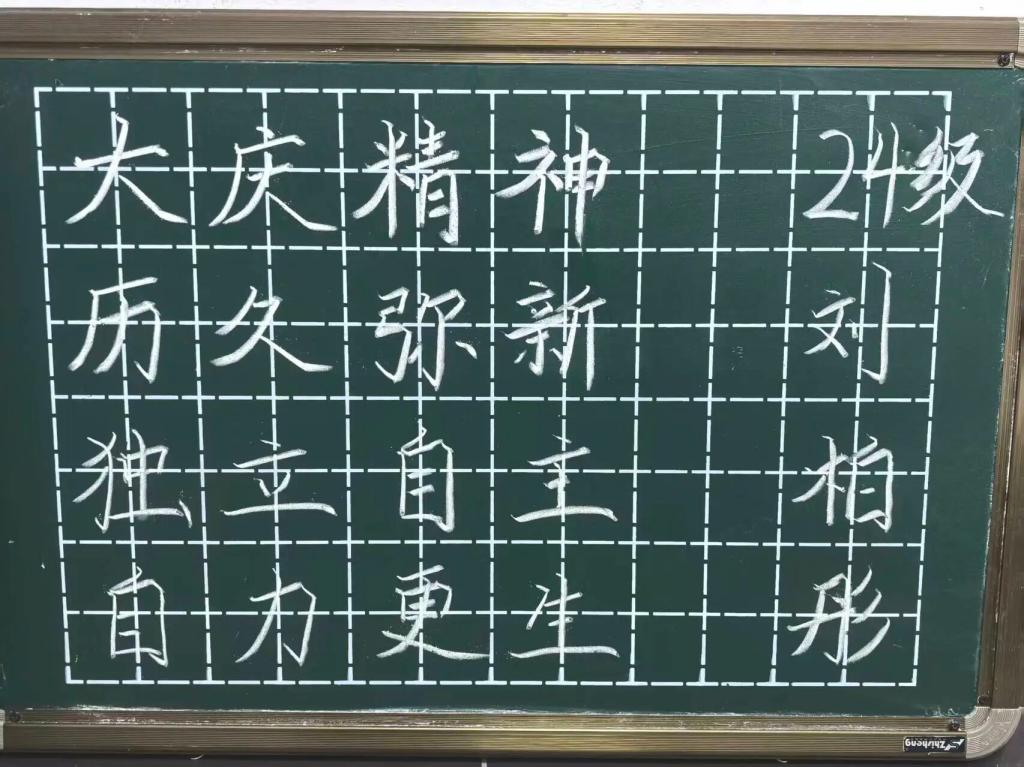 大庆精神 24级
历久弥新 刘
独立自主 柏
自力更生 彤
Zhisheng